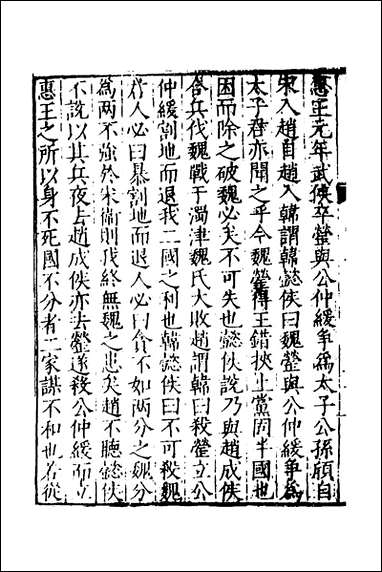 惠王元年武侯卒䓨與公仲緩爭為太子公孫頎自
宋入趙自趙入韓謂韓懿侯曰魏䓨與公仲緩爭為
太子君亦聞之乎今魏䓨得王錯挾上黨固半國也
因而除之破魏必矣不可失也懿侯說乃與趙成侯
合兵伐魏戰于濁津魏氏大敗趙謂韓曰殺䓨立公
仲緩割地而退我二國之利也韓懿侯曰不可殺魏
君人必曰暴割地而退人必曰貪不如兩分之魏分
為兩不強於宋衛則我終無魏之患矣趙不聽懿侯
不說以其兵夜去趙成侯亦去䓨遂殺公仲緩而立
惠王之所以身不死國不分者二家謀不和也若從